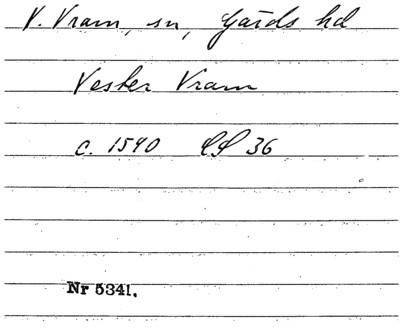 V. Vram, sn, Gärds hd
Vester Vram
c. 1590 36
Nr 5341.